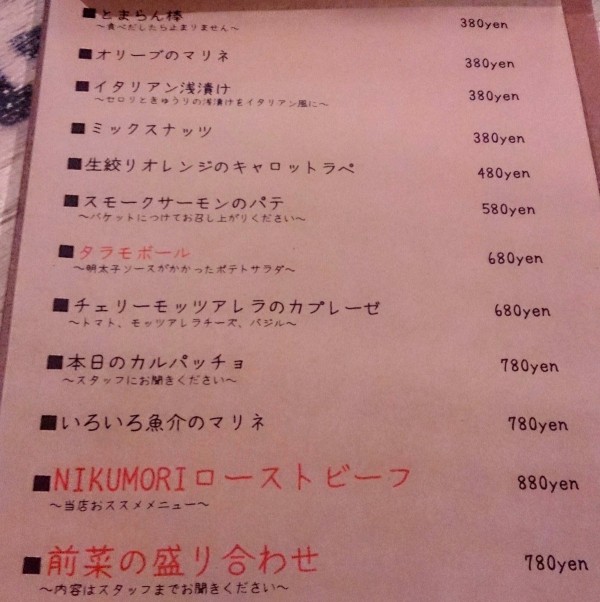 ■とまらん棒 380yen
～食べだしたら止まりません～
■オリーブのマリネ 380yen
■イタリアン浅漬け 380yen
～セロリときゅうりの浅漬けをイタリアン風に～
■ミックスナッツ 380yen
■生絞りオレンジのキャロットラペ 480yen
■スモークサーモンのパテ 580yen
～バケットにつけてお召し上がりください～
■タラモボール 680yen
～明太子ソースがかかったポテトサラダ～
■チェリーモッツアレラのカプレーゼ 680yen
～トマト、モッツアレラチーズ、バジル～
■本日のカルパッチョ 780yen
～スタッフにお聞きください～
■いろいろ魚介のマリネ 780yen
■NIKUMORIローストビーフ 880yen
～当店おススメメニュー～
■前菜の盛り合わせ 780yen
～内容はスタッフまでお聞きください～